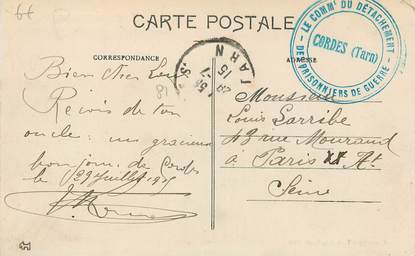 CARTE POSTALE
CORRESPONDANCE
ADRESSE
LE COMM^t DU DÉTACHEMENT
DES PRISONNIERS DE GUERRE
CORDES (Tarn)
TARN
Bien cher
Reçois de ton
oncle: un gracieux
bonjour de Cordes
le 29 Juillet 1915
Monsieur
Louis Larribe
43 rue Mouraud
à Paris XX Art
Seine